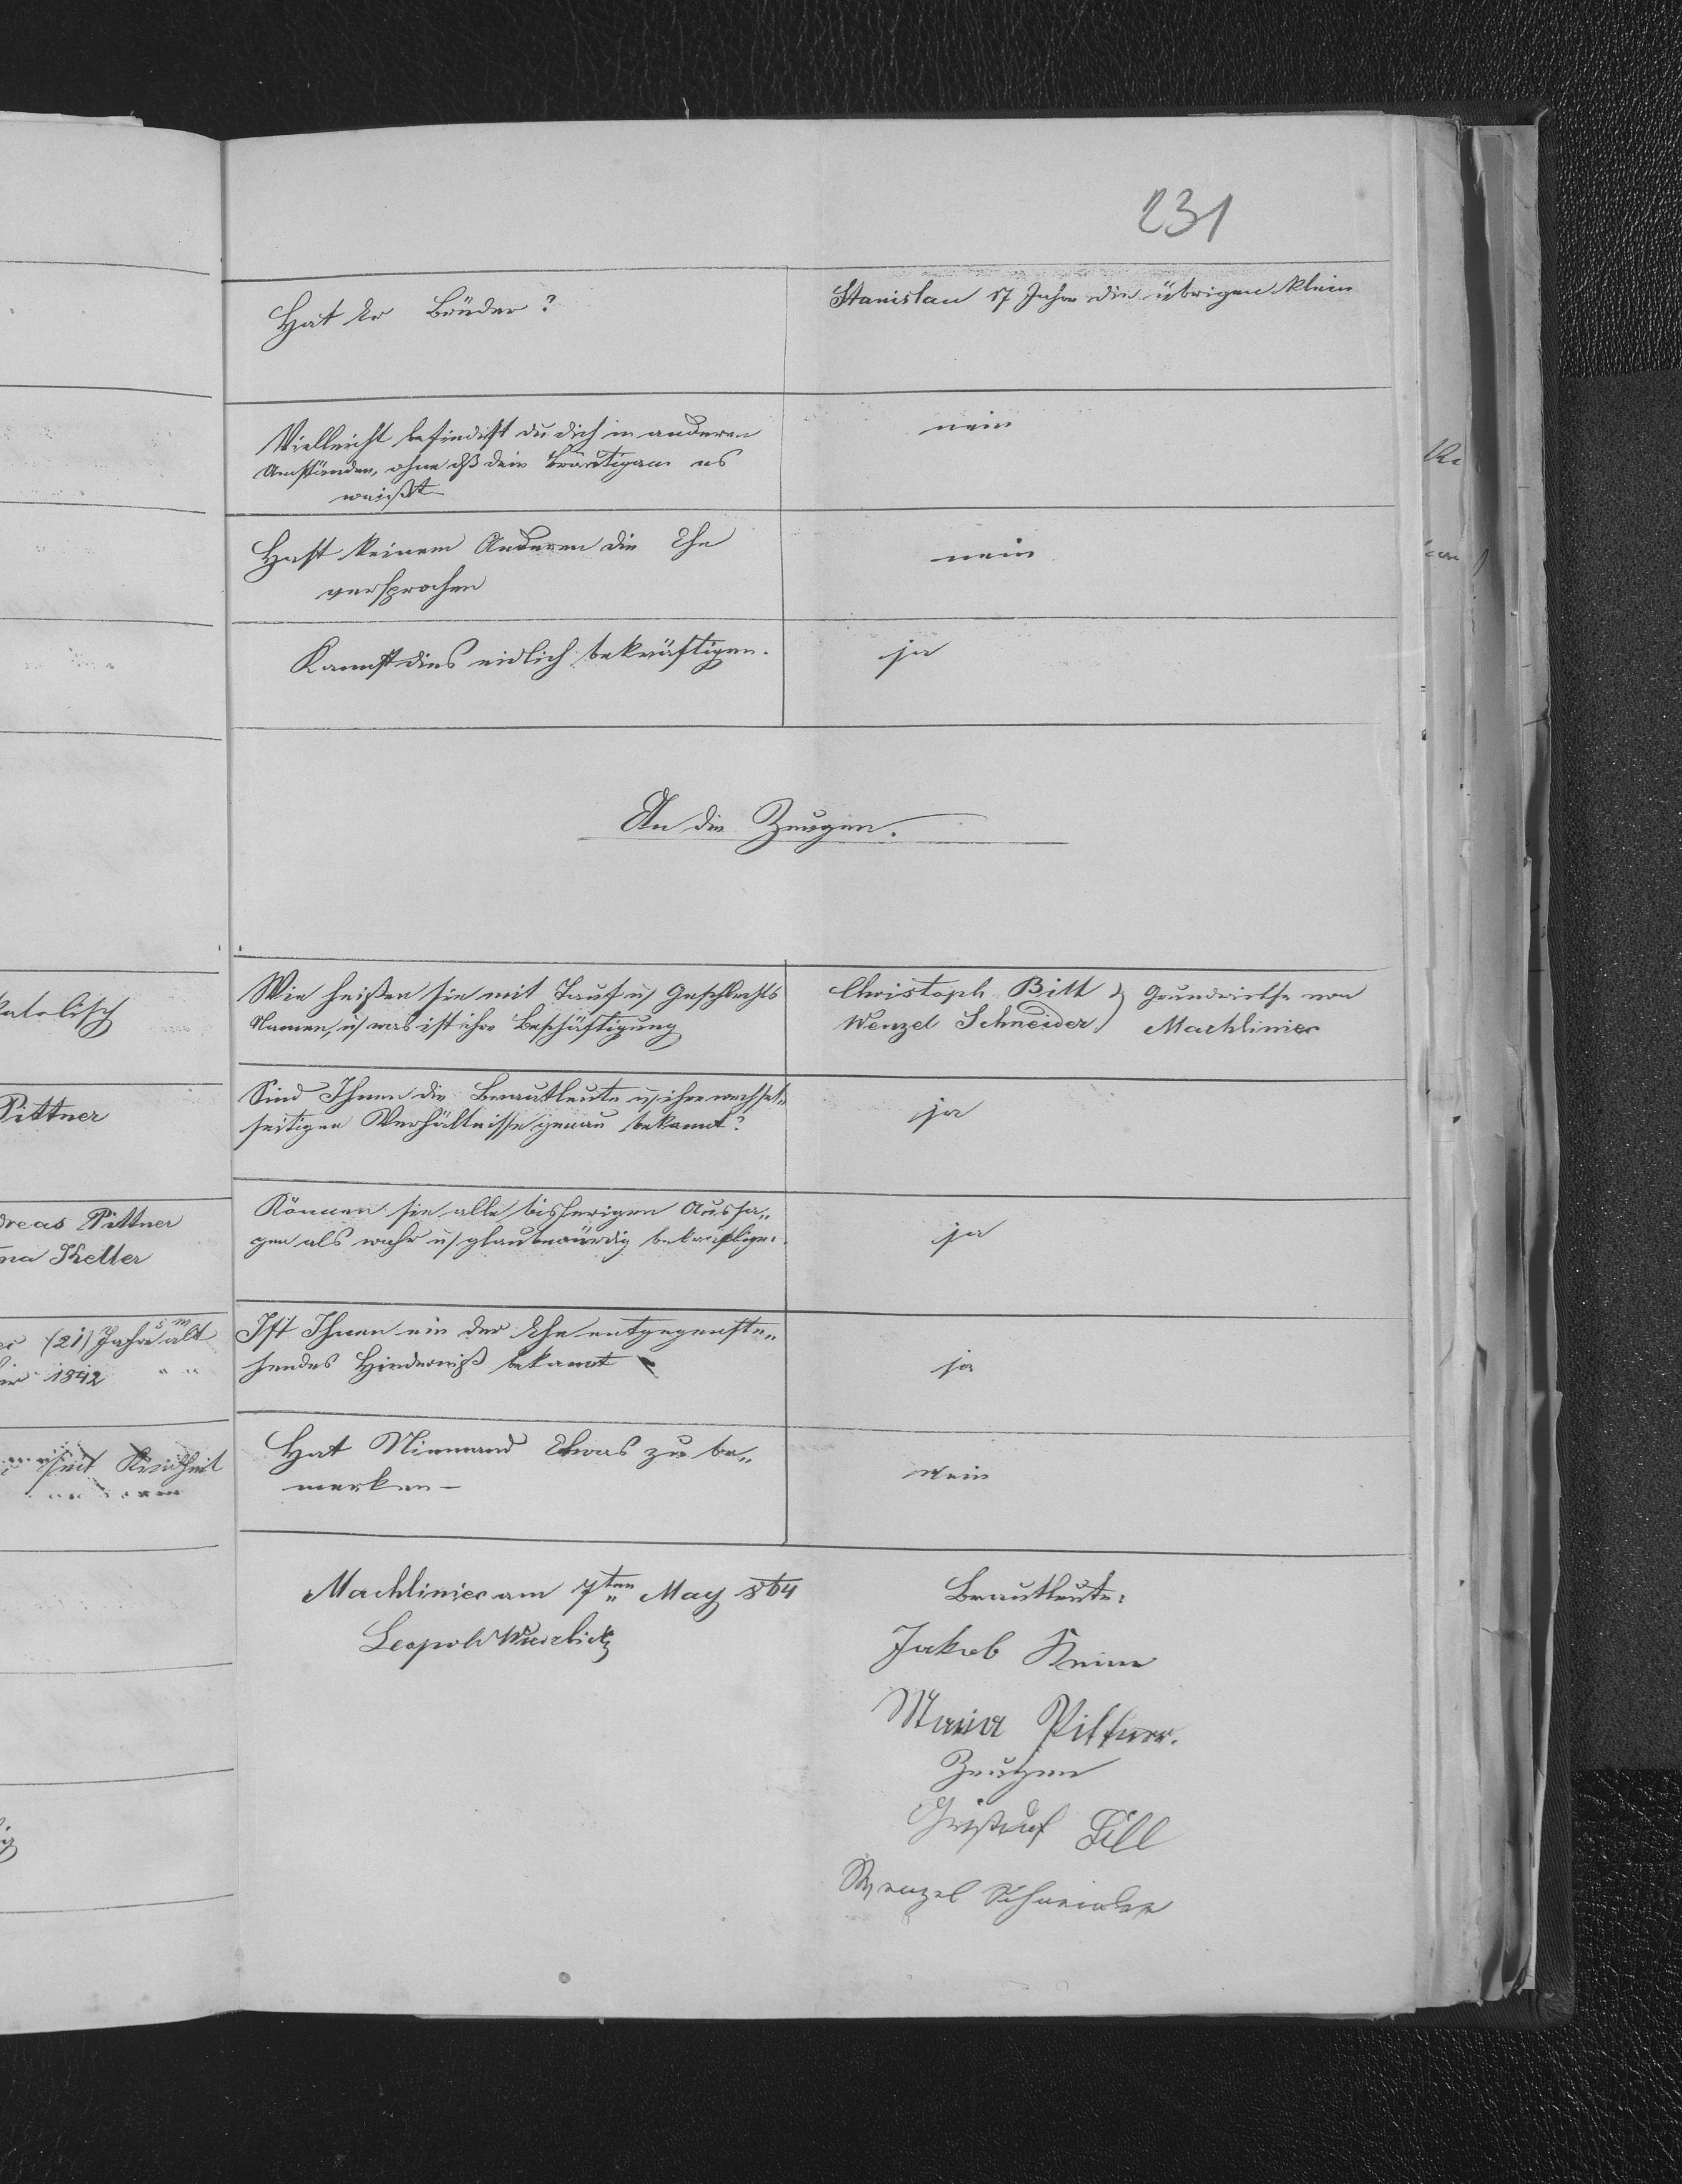 231
Hat Er Brüder?
Stanislau 17 Jahre die übrigen klein
Vielleicht befindest du dich in anderen
Umständen, ohne dß dein Bräutigam es
weißt
nein
Hast keinem Anderen die Ehe
versprochen
nein
Kannst dies eidlich bekräftigen.
ja
An die Zeugen.
Wie heißen sie mit Tauf u/ Geschlechts
Namen, u/ was ist ihre Beschäftigung
Christoph Bill } Grundwirthe von
Wenzel Schneider } Machliniec
Sind Ihnen die Brautleute u/ ihre wechsel„
seitigen Verhältnisse genau bekannt?
ja
Können sie alle bisherigen Aussa„
gen als wahr u/ glaubwürdig bekräftigen.
ja
Ist Ihnen ein der Ehe entgegenste„
hendes Hinderniß bekannt
ja
Hat Niemand Etwas zu be„
merken –
Nein
Machliniec am 7ten May 864
Leopold
Brautleute:
Jakob
Maria Pittner.
Zeugen
Bill
Wenzel Schneider
katolisch
Pittner
dreas Pittner
na Keller
(21) Jahre alt
1842
seit Kindheit